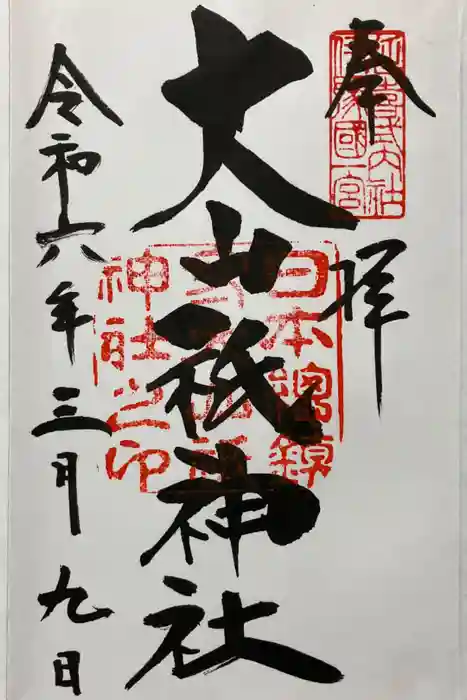 奉拝
延喜式大社
伊豫國一宮
大山祇神社
日本總鎮
神社之印
令和六年三月九日